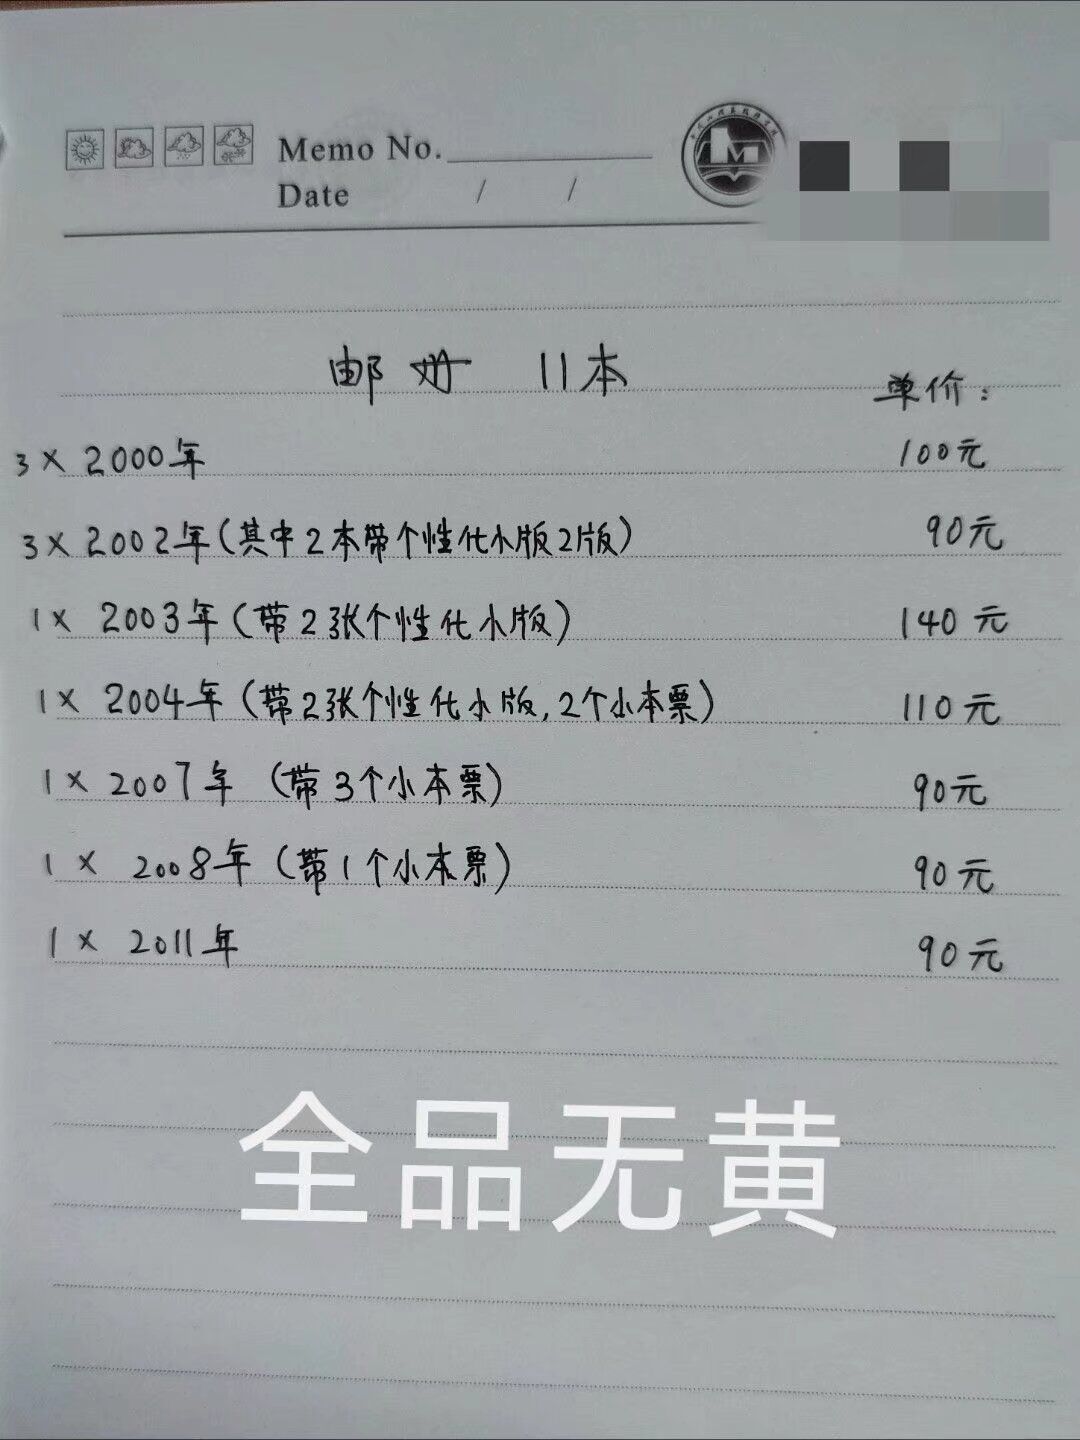 Memo No.
Date / /
邮册 11本
单价:
3× 2000年 100元
3× 2002年(其中2本带个性化小版2版) 90元
1× 2003年(带2张个性化小版) 140元
1× 2004年(带2张个性化小版,2个小本票) 110元
1× 2007年(带3个小本票) 90元
1× 2008年(带1个小本票) 90元
1× 2011年 90元
全品无黄